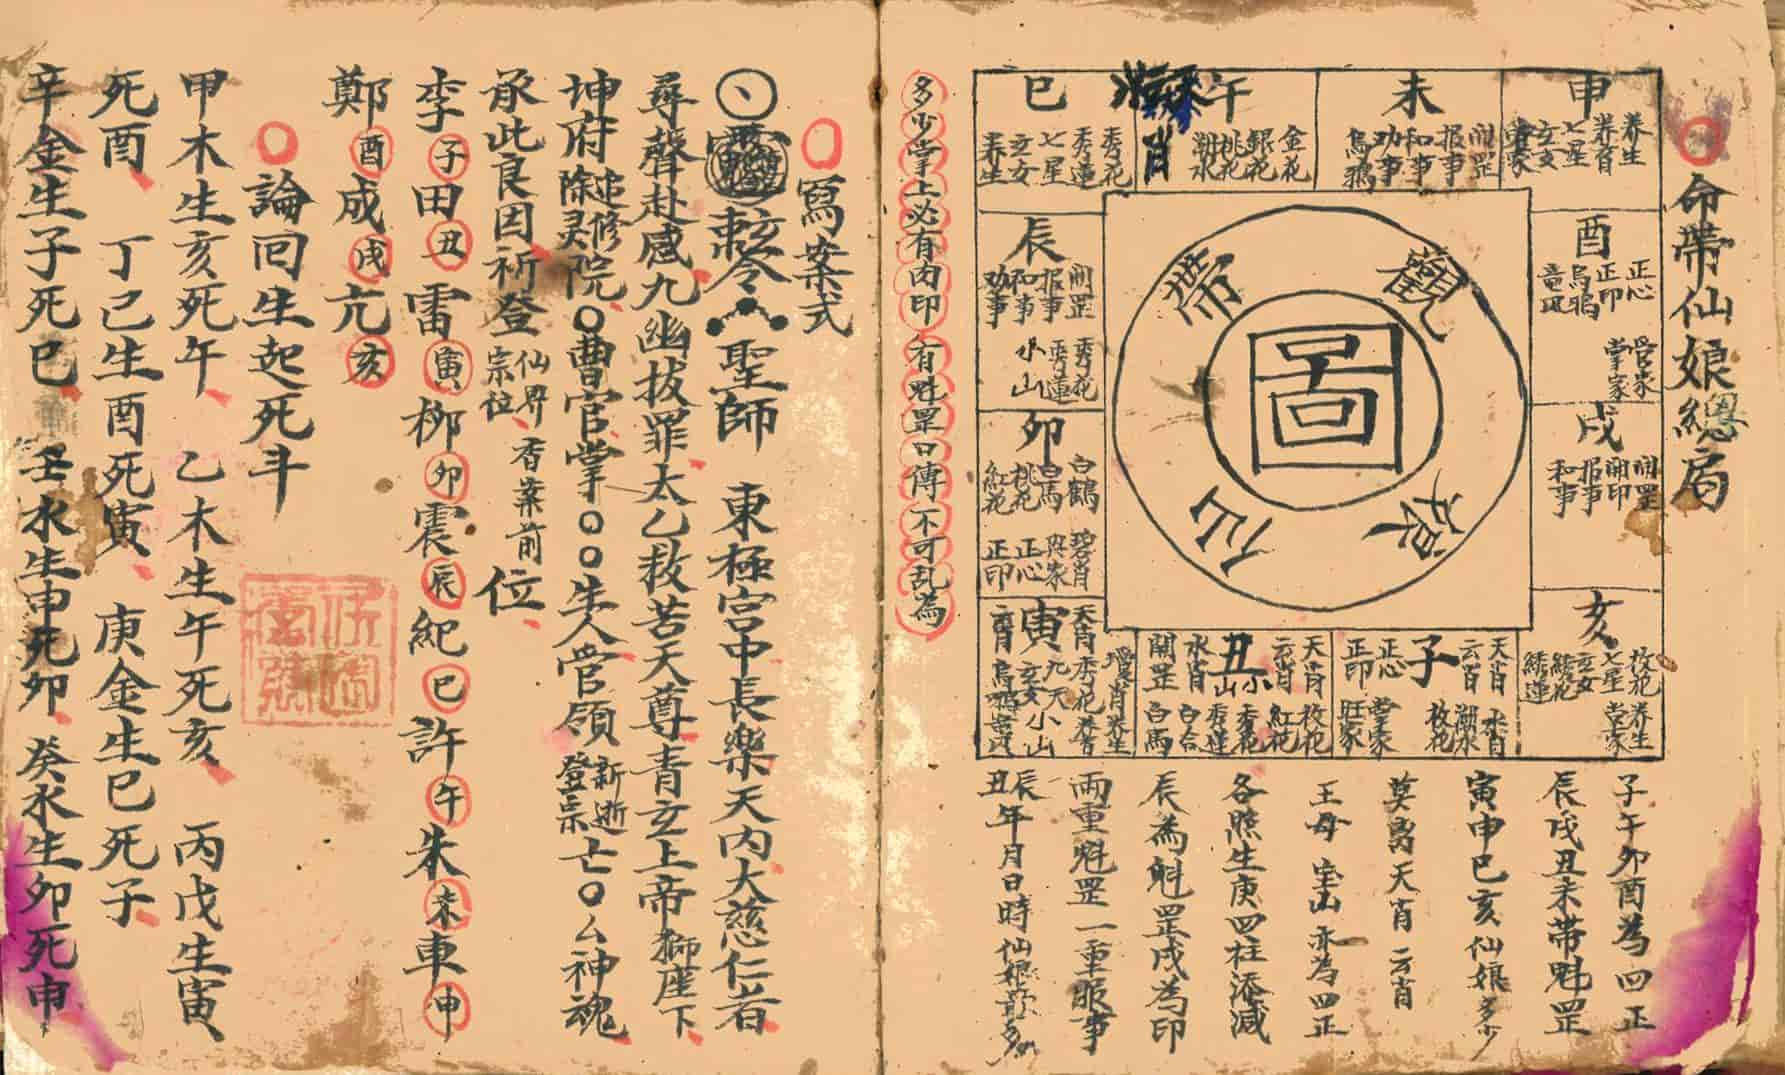 命帶仙娘總局
申
養生
養肖
七星
玄女
掌家
未
開罡
报事
和事
劝事
烏鴉
午
金花
銀花
桃花
潮水
肖
巳
秀花
秀蓮
七星
玄女
養生
酉
正心
正印
烏鴉
管家
掌家
戌
開罡
開印
报事
和事
亥
枚花
七星
玄女
綉花
綉蓮
養生
當家
辰
開罡
报事
和事
劝事
秀花
秀蓮
小山
卯
白鶴
白馬
桃花
紅花
碧肖
與家
正心
正印
寅
天肖
秀花
養肖
九天
玄女
小山
烏鴉
瓊肖
養生
丑
天肖
云肖
小山
水肖
開罡
枚花
紅花
秀花
秀蓮
白合
白馬
子
天肖
云肖
水肖
潮水
枚花
正心
正印
掌家
旺家
觀
帶
仙
圖
子午卯酉為四正
辰戌丑未帶魁罡
寅申巳亥仙娘多少
莫离天肖云肖
王母宝山亦為四正
各照生庚四柱添減
辰為魁罡戌為印
兩重魁罡一重服事
辰丑年月日時仙娘
多少掌上必有肉印有魁罡口傳不可乱為
寫案式
敕令聖師 東極宮中長樂天內大慈仁者
尋聲赴感九幽拔罪太乙救苦天尊青玄上帝獅座下
坤府追修除灵院〇曹官掌〇〇生人管領新逝登宗亡〇厶神魂
承此良因祈登仙界宗位香案前位
李子田丑雷寅柳卯震辰紀巳許午朱未車申
鄭酉成戌亢亥
論回生起死斗
甲木生亥死午 乙木生午死亥 丙戊生寅
死酉 丁己生酉死寅 庚金生巳死子
辛金生子死巳 壬水生申死卯 癸水生卯死申